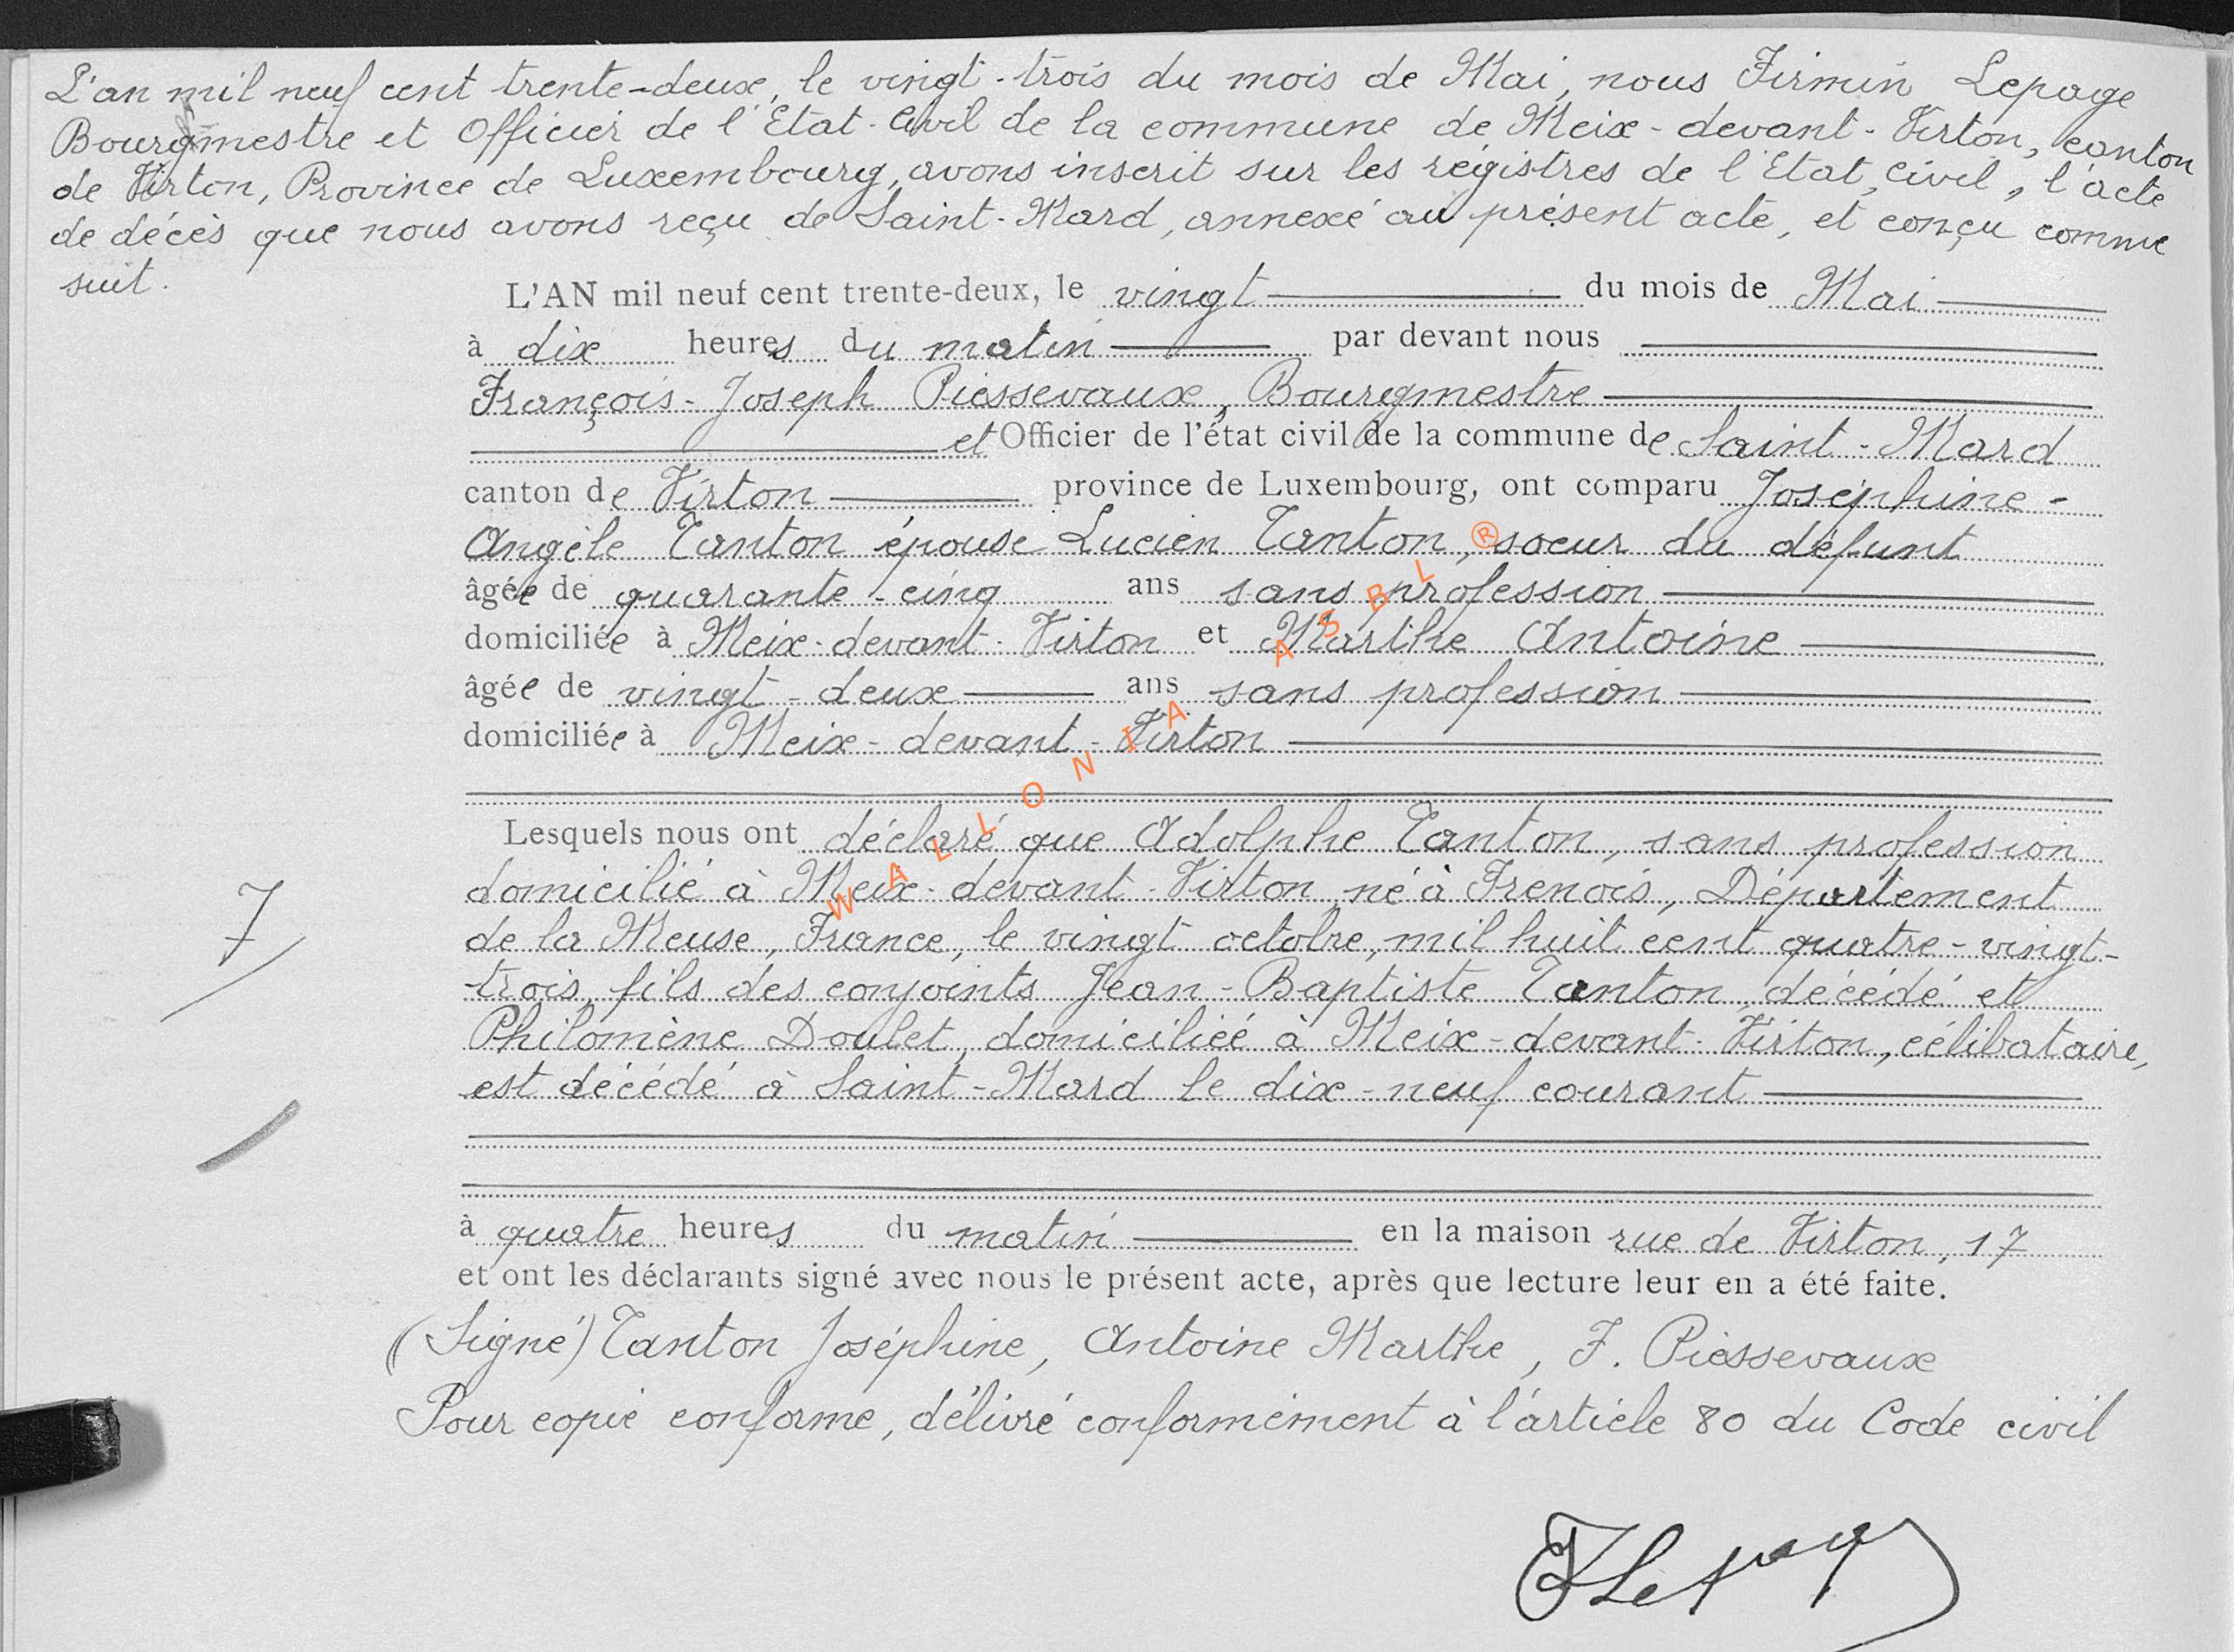 L'an mil neuf cent trente-deux, le vingt-trois du mois de Mai, nous Firmin Lepage
Bourgmestre et Officier de l'Etat-Civil de la commune de Meix-devant-Virton, canton
de Virton, Province de Luxembourg, avons inscrit sur les régistres de l'Etat Civil, l'acte
de décès que nous avons reçu de Saint-Mard, annexé au présent acte, et conçu comme
suit.
L'AN mil neuf cent trente-deux, le vingt du mois de Mai
à dix heures du matin par devant nous
François-Joseph Piessevaux, Bourgmestre
et Officier de l'état civil de la commune de Saint-Mard
canton de Virton province de Luxembourg, ont comparu Joséphine-
Angèle Tanton épouse Lucien Tanton, soeur du défunt
âgée de quarante-cinq ans sans profession
domiciliée à Meix-devant-Virton et Marthe Antoine
âgée de vingt-deux ans sans profession
domiciliée à Meix-devant-Virton
Lesquels nous ont déclaré que Adolphe Tanton, sans profession
domicilié à Meix-devant-Virton, né à Frenois, Département
de la Meuse, France, le vingt octobre, mil huit cent quatre-vingt-
trois, fils des conjoints Jean-Baptiste Tanton, décédé et
Philomène Doulet, domiciliée à Meix-devant-Virton, célibataire,
est décédé à Saint-Mard le dix-neuf courant
7
à quatre heures du matin en la maison rue de Virton, 17
et ont les déclarants signé avec nous le présent acte, après que lecture leur en a été faite.
(Signé) Tanton Joséphine, Antoine Marthe, F. Piessevaux
Pour copie conforme, délivré conformément à l'article 80 du Code civil
FLepage
WALLONIA ASBL ®